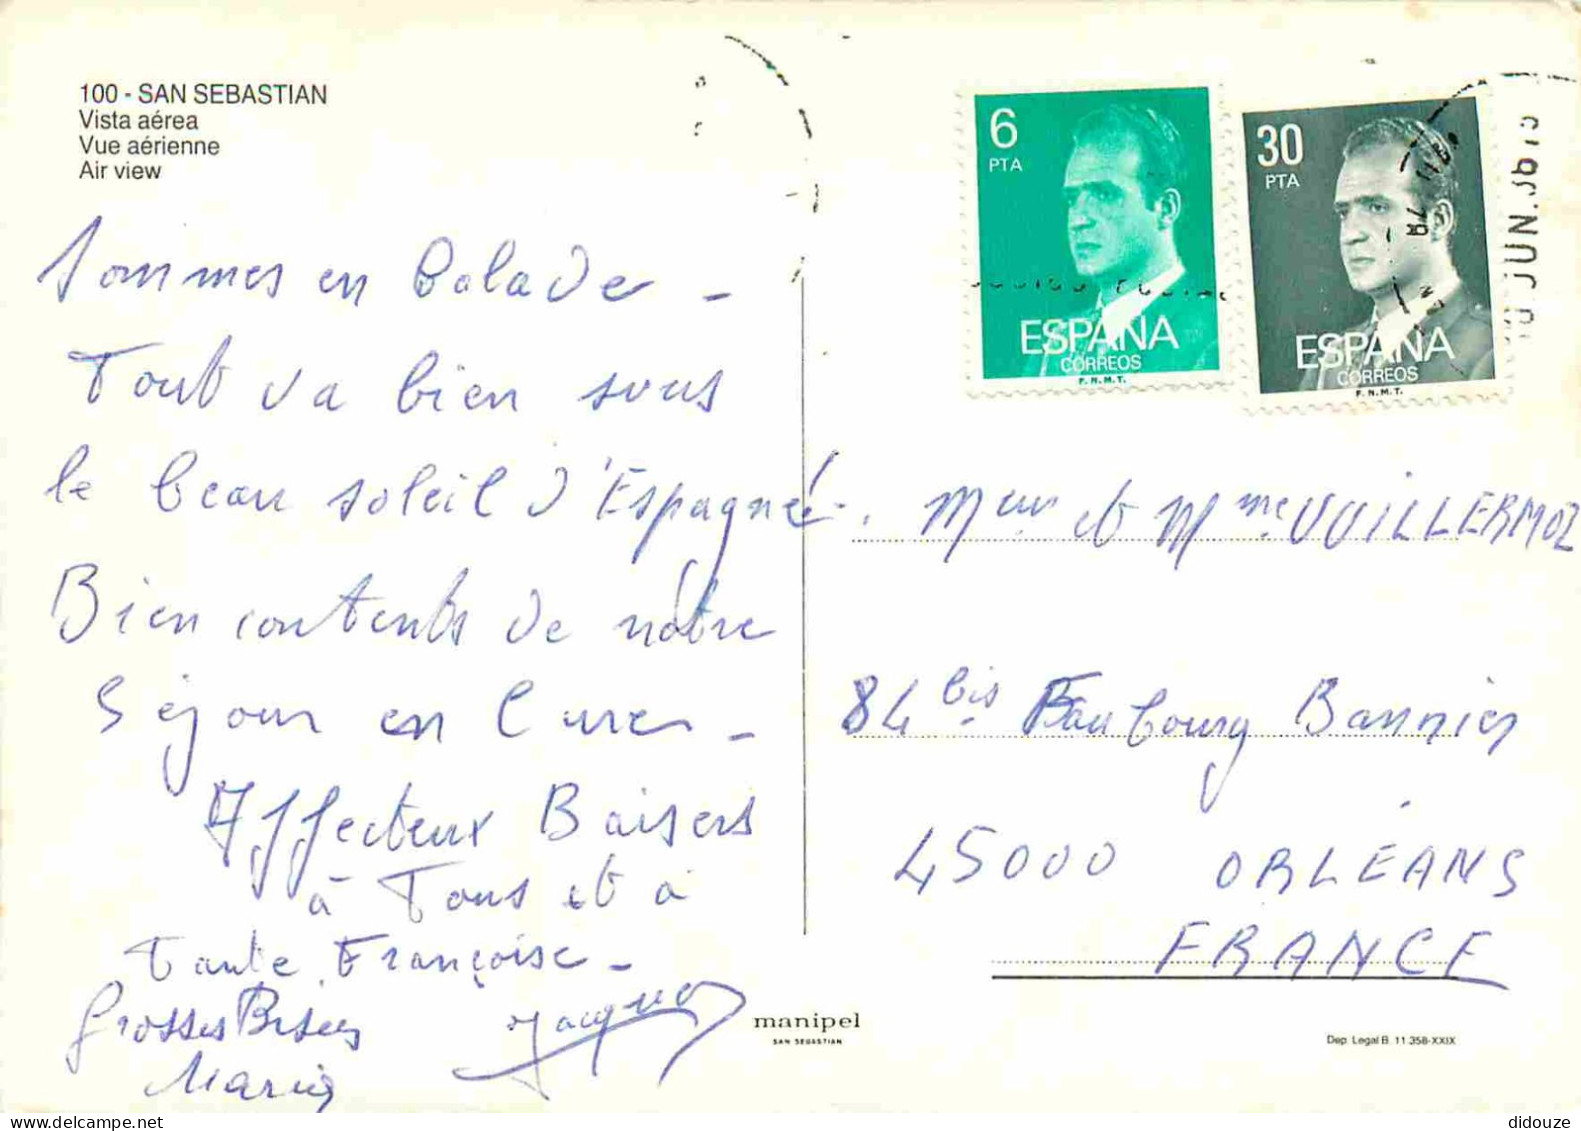 100 - SAN SEBASTIAN
Vista aérea
Vue aérienne
Air view
Sommes en balade -
Tout va bien sous
le beau soleil d'Espagne.
Bien contents de notre
séjour en cure -
Affectueux Baisers
à Tous et à
Tante Françoise -
Grosses Bises
Maria
Jacques
6
PTA
ESPAÑA
CORREOS
F.N.M.T.
30
PTA
ESPAÑA
CORREOS
F.N.M.T.
JUN.
Meur et Mme VUILLERMOZ
84 bis Faubourg Bannier
45000 ORLÉANS
FRANCE
manipel
SAN SEBASTIAN
Dep. Legal B. 11.358-XXIX
didouze